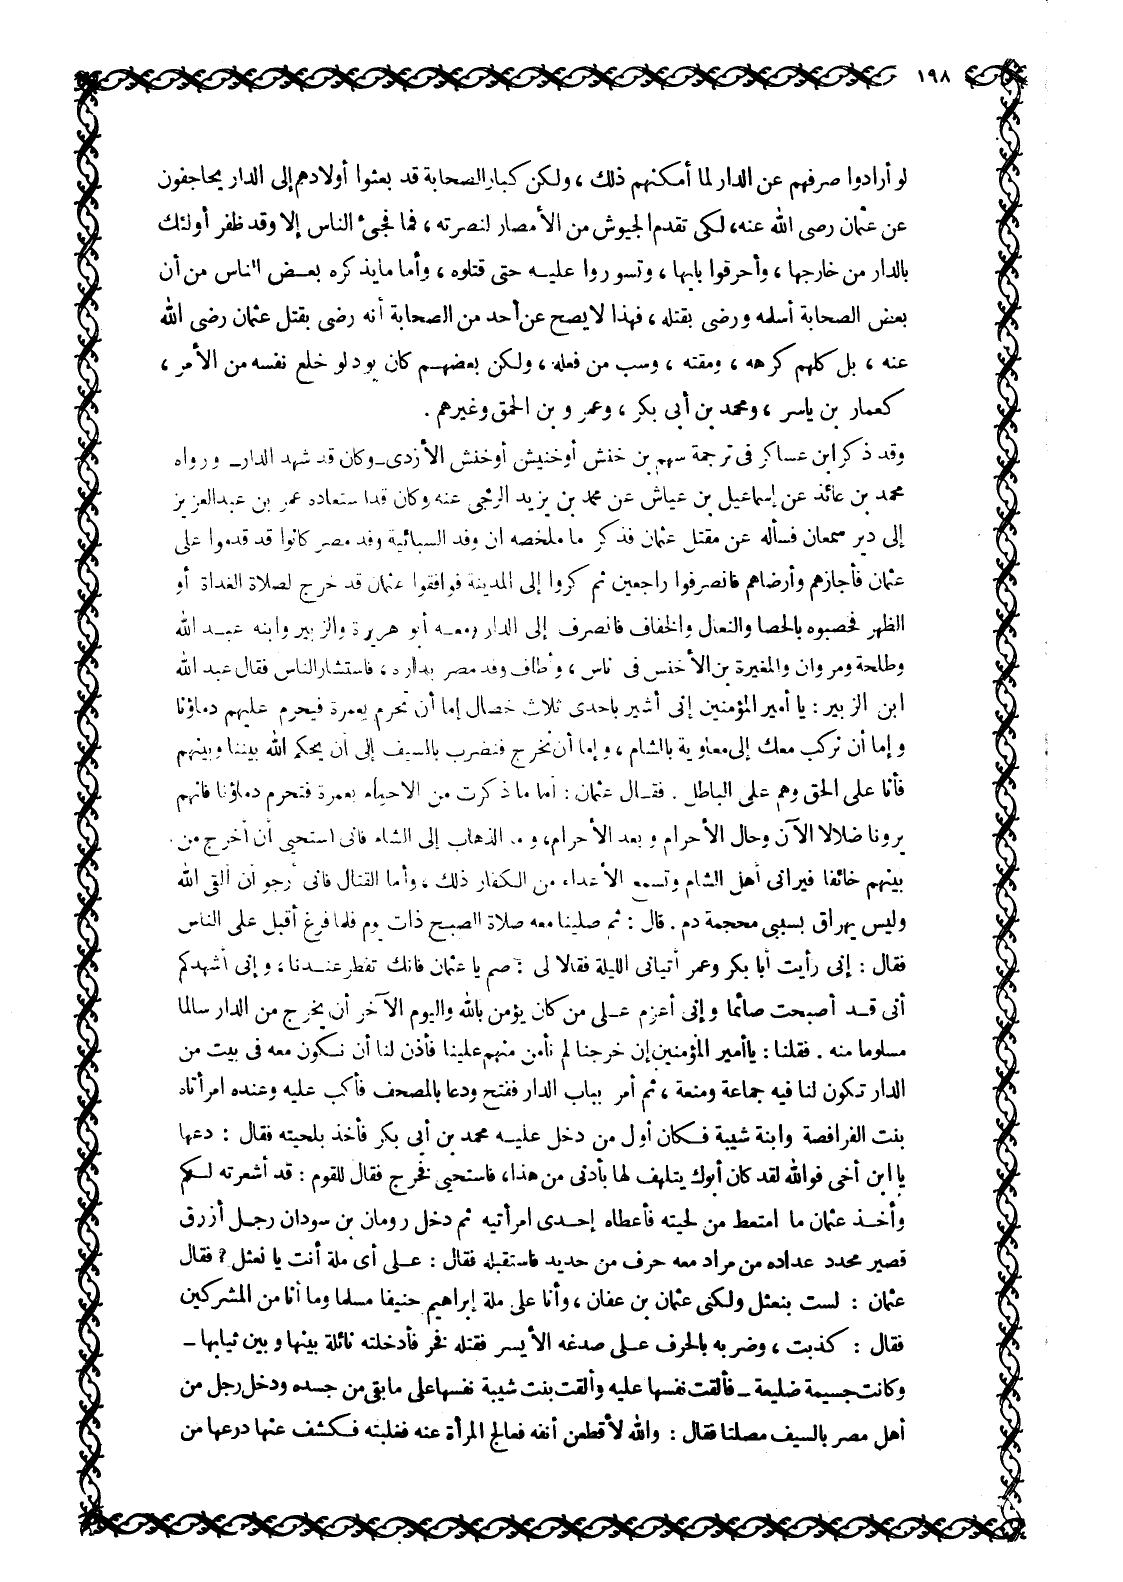 ١٩٨
لو أرادوا صرفهم عن الدار لما أمكنهم ذلك ، ولكن كبار الصحابة قد بعثوا أولادهم إلى الدار يحاجفون
عن عثمان رضى الله عنه، لكى تقدم الجيوش من الأمصار لنصرته ، فما فجىء الناس إلا وقد ظفر أولئك
بالدار من خارجها ، وأحرقوا بابها ، وتسوروا عليه حتى قتلوه ، وأما ما يذكره بعض الناس من أن
بعض الصحابة أسلمه ورضى بقتله ، فهذا لا يصح عن أحد من الصحابة أنه رضى بقتل عثمان رضى الله
عنه ، بل كلهم كرهه ، ومقته ، وسب من فعله ، ولكن بعضهم كان يود لو خلع نفسه من الأمر ،
كعمار بن ياسر ، ومحمد بن أبى بكر ، وعمرو بن الحمق وغيرهم .
وقد ذكر ابن عساكر فى ترجمة سهم بن خنش أو خنيش أو خنش الأزدى ــ وكان قد شهد الدار ــ ورواه
محمد بن عائذ عن إسماعيل بن عياش عن محمد بن يزيد الرحبى عنه وكان قد استعاده عمر بن عبد العزيز
إلى دير سمعان فسأله عن مقتل عثمان فذكر ما ملخصه ان وفد السبائية وفد مصر كانوا قد قدموا على
عثمان فأجازهم وأرضاهم فانصرفوا راجعين ثم كروا إلى المدينة فوافقوا عثمان قد خرج لصلاة الغداة أو
الظهر فحصبوه بالحصا والنعال والخفاف فانصرف إلى الدار ومعه أبو هريرة والزبير وابنه عبد الله
وطلحة ومروان والمغيرة بن الأخنس فى ناس ، وأطاف وفد مصر بداره ، فاستشار الناس فقال عبد الله
ابن الزبير : يا أمير المؤمنين إنى أشير باحدى ثلاث خصال إما أن تحرم بعمرة فيحرم عليهم دماؤنا
وإما أن نركب معك إلى معاوية بالشام ، وإما أن نخرج فنضرب بالسيف إلى أن يحكم الله بيننا وبينهم
فأنا على الحق وهم على الباطل . فقال عثمان : أما ما ذكرت من الاحياء بعمرة فتحرم دماؤنا فانهم
يرونا ضلالا الآن وحال الأحرام وبعد الأحرام، و الذهاب إلى الشام فانى استحيى أن أخرج من
بينهم خائفا فيرانى أهل الشام وتسمع الأعداء من الكفار ذلك ، وأما القتال فانى أرجو أن ألقى الله
وليس يهراق بسببى محجمة دم . قال : ثم صلينا معه صلاة الصبح ذات يوم فلما فرغ أقبل على الناس
فقال : إنى رأيت أبا بكر وعمر أتيانى الليلة فقالا لى : صم يا عثمان فانك تفطر عندنا ، وإنى أشهدكم
أنى قد أصبحت صائما وإنى أعزم على من كان يؤمن بالله واليوم الآخر أن يخرج من الدار سالما
مسلوما منه . فقلنا : يا أمير المؤمنين إن خرجنا لم نأمن منهم علينا فأذن لنا أن نكون معه فى بيت من
الدار تكون لنا فيه جماعة ومنعة ، ثم أمر بباب الدار ففتح ودعا بالمصحف فأكب عليه وعنده امرأتاه
بنت الفرافصة وابنة شيبة فكان أول من دخل عليه محمد بن أبى بكر فأخذ بلحيته فقال : دعها
يا ابن أخى فوالله لقد كان أبوك يتلهف لها بأدنى من هذا، فاستحيى فخرج فقال للقوم : قد أشعرته لكم
وأخذ عثمان ما امتعط من لحيته فأعطاه إحدى امرأتيه ثم دخل رومان بن سودان رجل أزرق
قصير محدد عداده من مراد معه حرف من حديد فاستقبله فقال : على أى ملة أنت يا نعثل ؟ فقال
عثمان : لست بنعثل ولكنى عثمان بن عفان ، وأنا على ملة إبراهيم حنيفا مسلما وما أنا من المشركين
فقال : كذبت ، وضربه بالحرف على صدغه الأيسر فقتله فخر فأدخلته نائلة بينها وبين ثيابها ــ
وكانت جسيمة ضليعة ــ فألقت نفسها عليه وألقت بنت شيبة نفسها على ما بقى من جسده ودخل رجل من
أهل مصر بالسيف مصلتا فقال : والله لأقطعن أنفه فعالج المرأة عنه فغلبته فكشف عنها درعها من